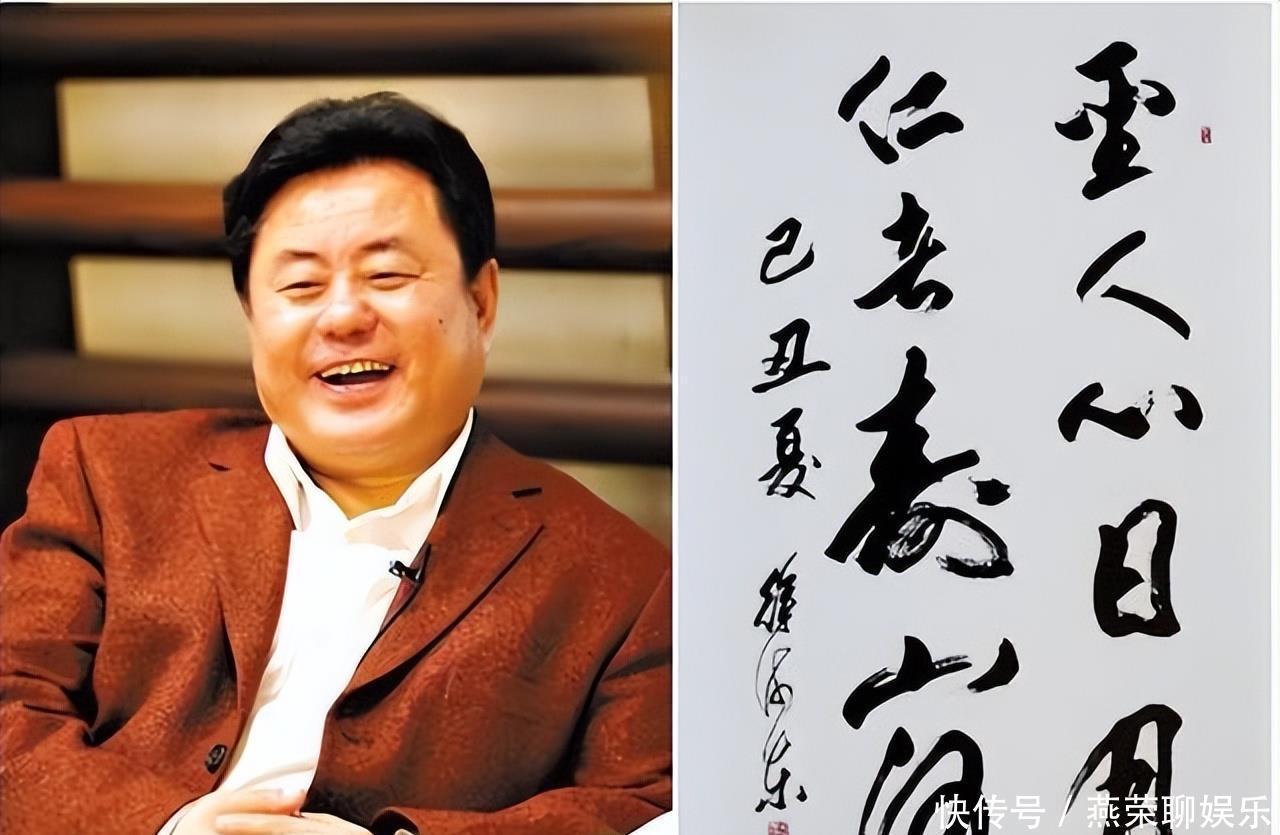 圣人心日月
仁者寿山河
己丑夏 徐沛东
快传号 / 燕荣聊娱乐